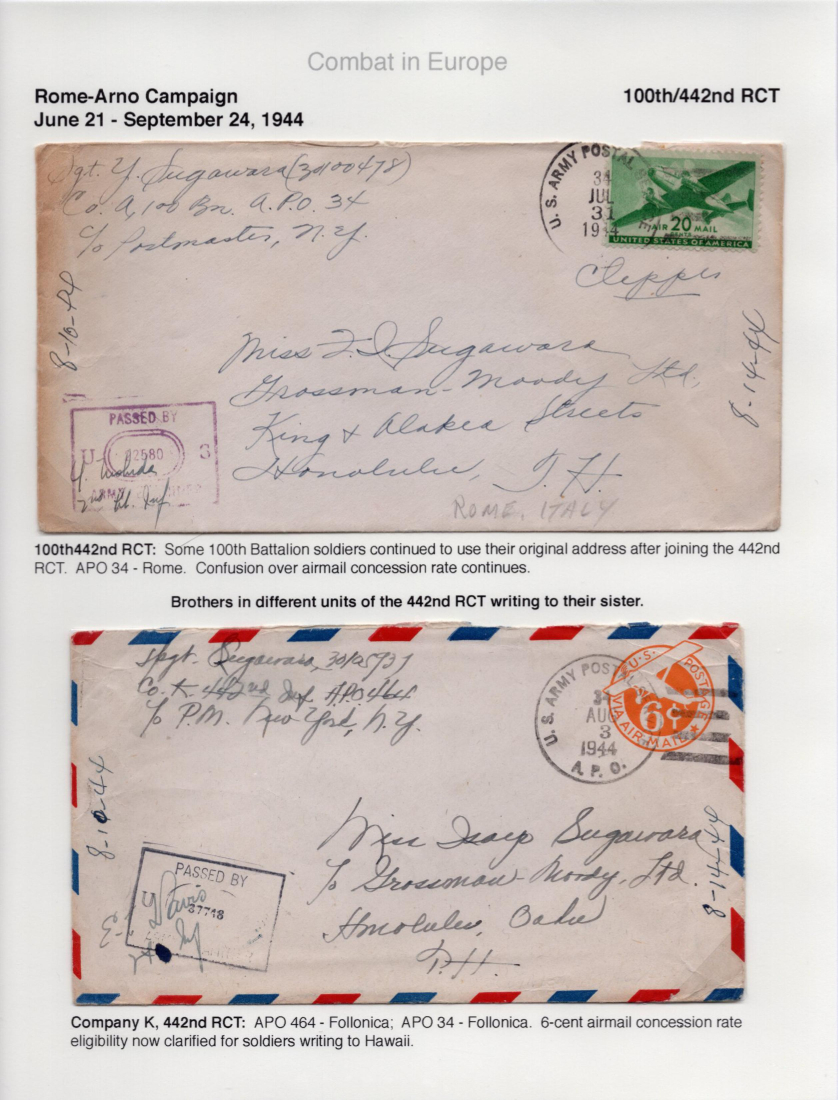 Combat in Europe
Rome-Arno Campaign 100th/442nd RCT
June 21 - September 24, 1944
Sgt. Y. Sugawara (30100478)
Co. A, 100 Bn. A.P.O. 34
c/o Postmaster, N.Y.
U. S. ARMY POSTAL
34
JUL
31
1944
AIR 20 MAIL
CENTS
UNITED STATES OF AMERICA
Clipper
8-10-44
8-14-44
Miss F. I. Sugawara
Grossman-Moody Ltd,
King & Alakea Streets
Honolulu, T. H.
ROME, ITALY
PASSED BY
U 02580 S
ARMY
2nd Lt. Inf
100th442nd RCT: Some 100th Battalion soldiers continued to use their original address after joining the 442nd
RCT. APO 34 - Rome. Confusion over airmail concession rate continues.
Brothers in different units of the 442nd RCT writing to their sister.
Sugawara
Co. K 442nd Inf APO 464
c/o P.M. New York, N.Y.
U. S. ARMY POSTAL
34
AUG
3
1944
A. P. O.
U.S. POSTAGE
6¢
VIA AIR MAIL
8-10-44
8-14-44
Miss Isaep Sugawara
c/o Grossman Moody, Ltd.
Honolulu, Oahu
T.H.
PASSED BY
37748
Inf
Company K, 442nd RCT: APO 464 - Follonica; APO 34 - Follonica. 6-cent airmail concession rate
eligibility now clarified for soldiers writing to Hawaii.